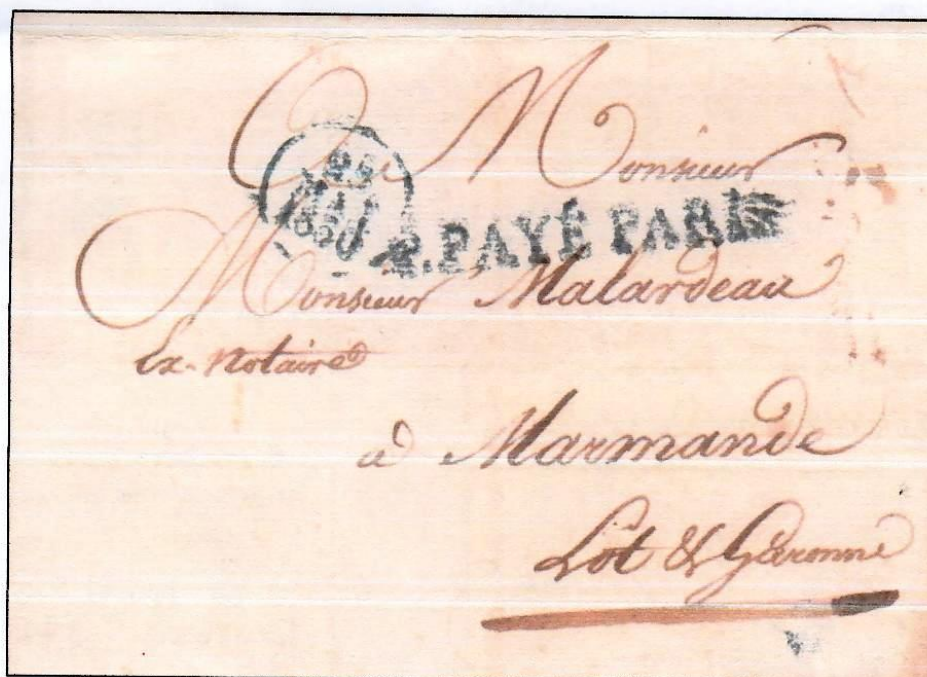 A Monsieur
MAI
P. PAYÉ PARIS
Monsieur Malardeau
Ex-Notaire
à Marmande
Lot & Garonne